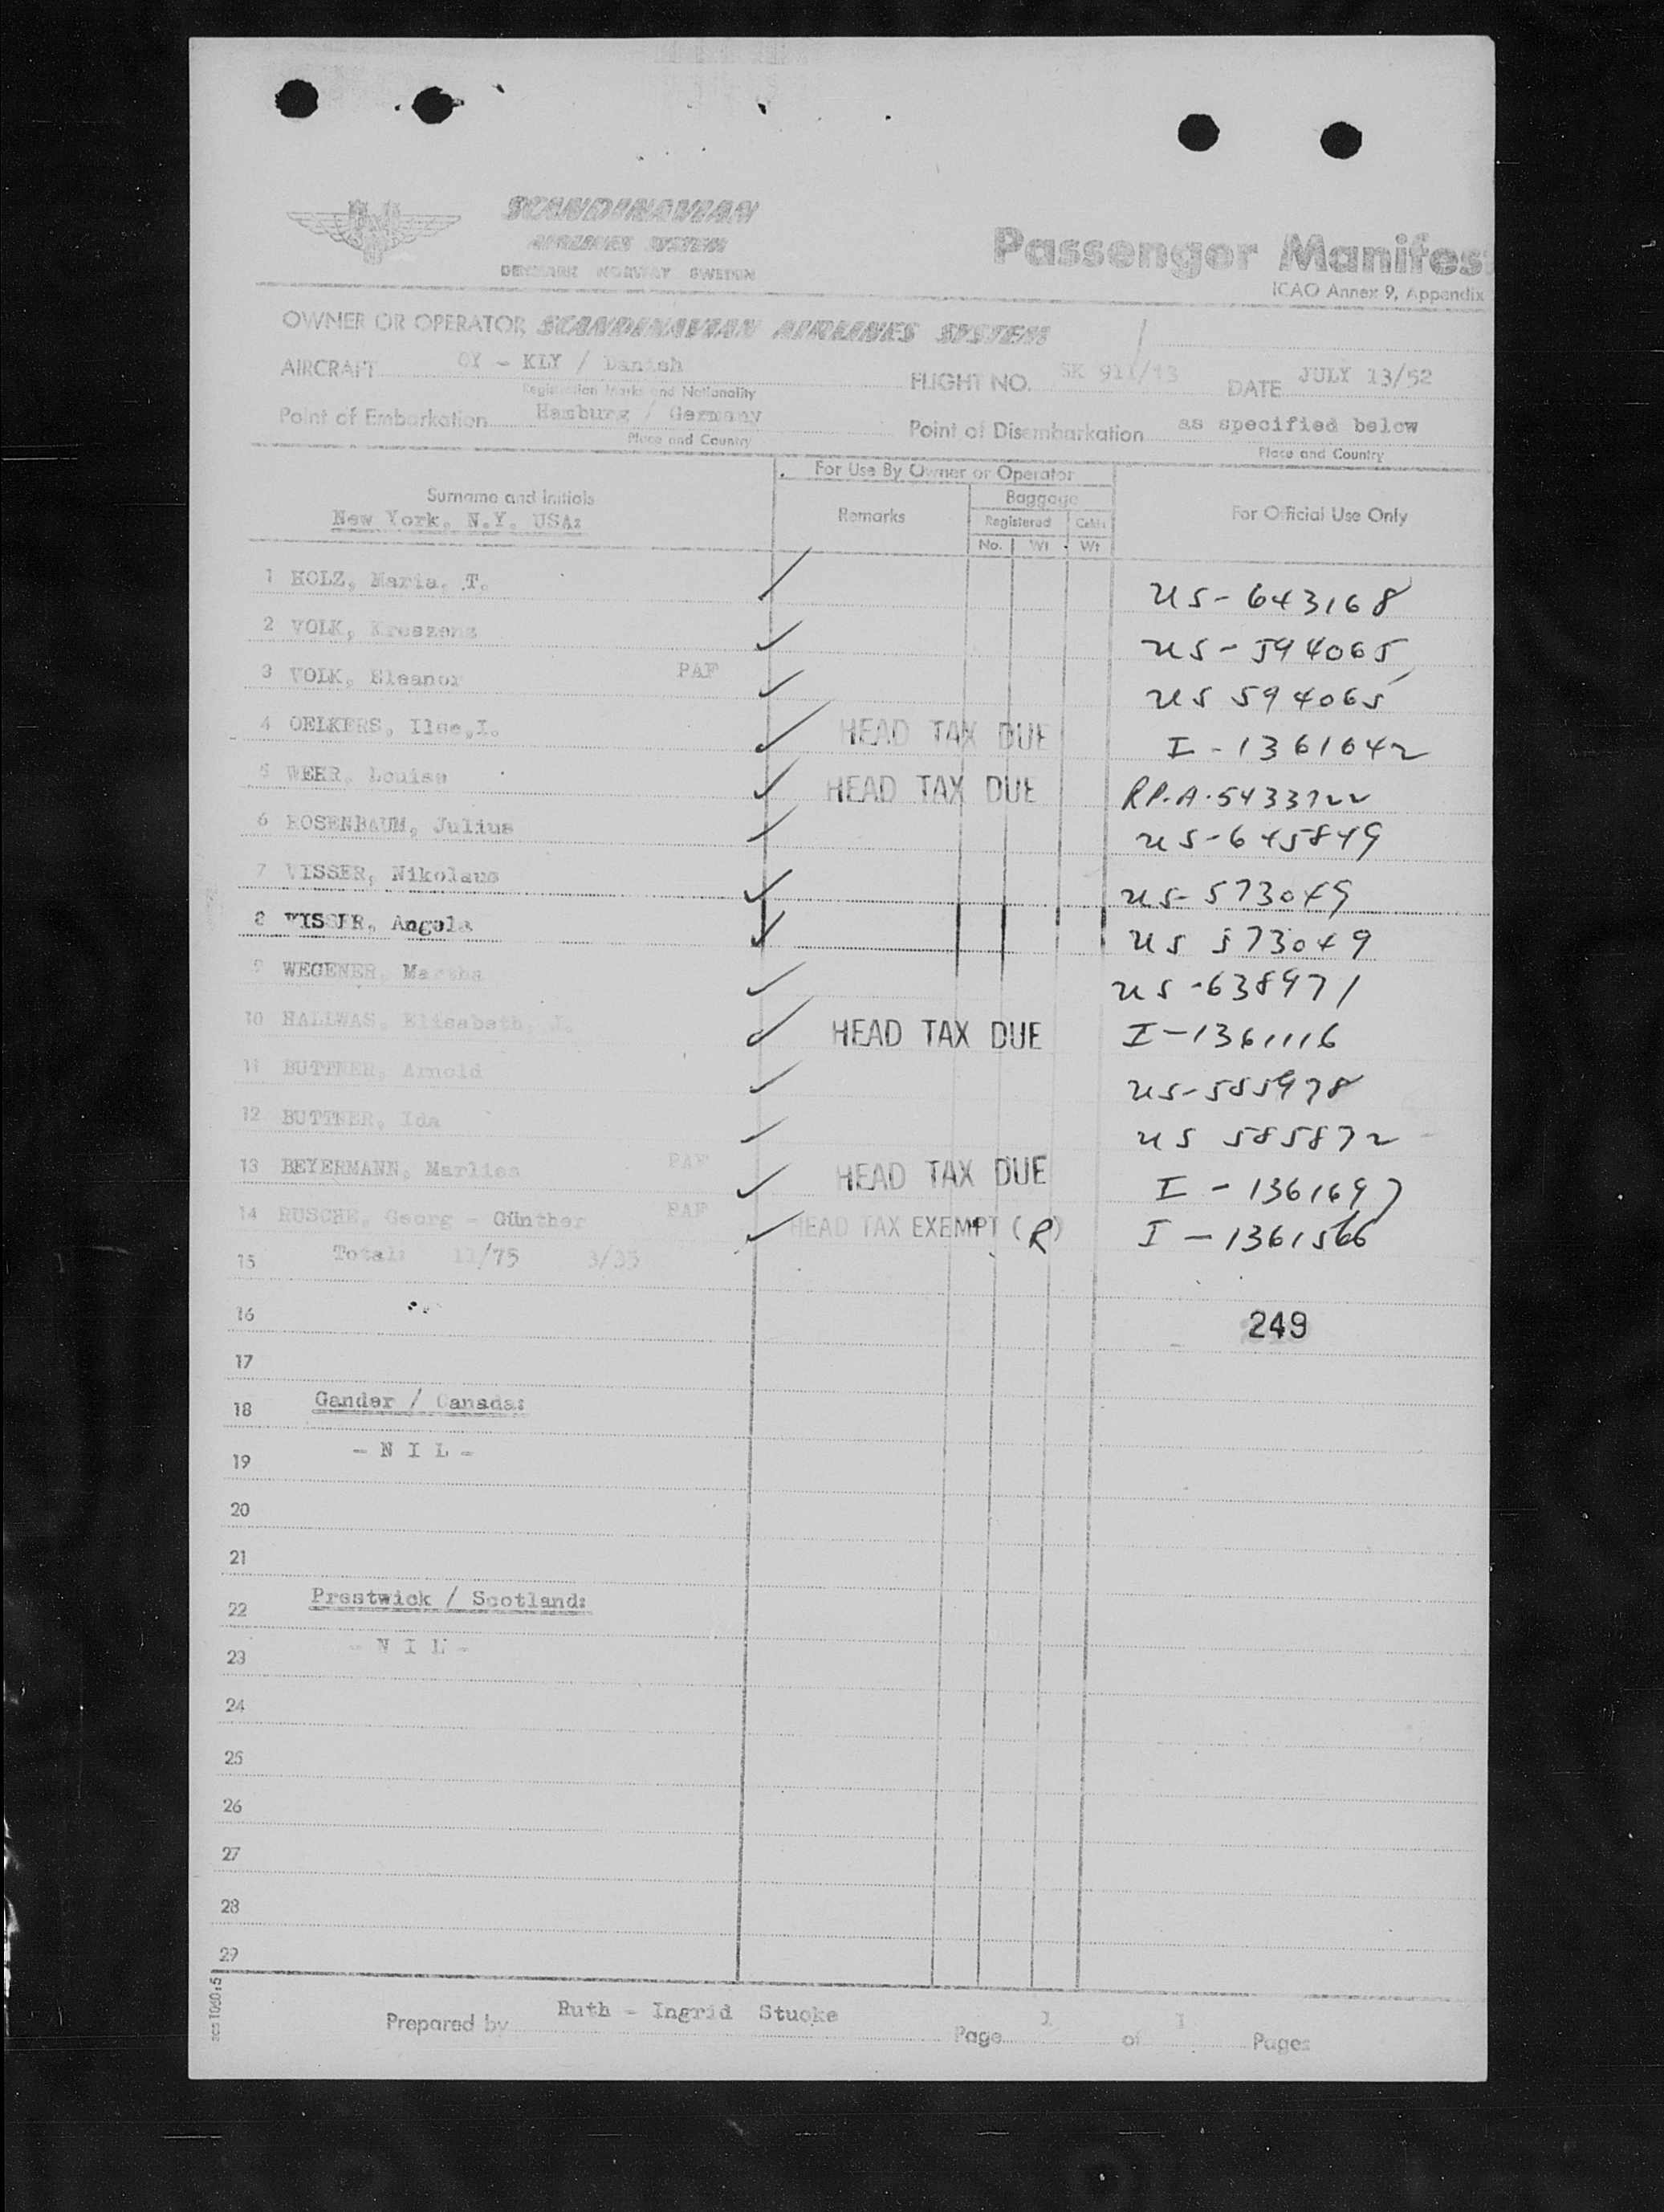 SCANDINAVIAN
AIRLINES SYSTEM
DENMARK NORWAY SWEDEN
Passenger Manifes
ICAO Annex 9, Appendix
OWNER OR OPERATOR SCANDINAVIAN AIRLINES SYSTEM
AIRCRAFT OY - KLY / Danish FLIGHT NO. SK 911/13 DATE JULY 13/52
Registration Marks and Nationality
Point of Embarkation Hamburg / Germany Point of Disembarkation as specified below
Place and Country Place and Country
For Use By Owner or Operator
Surname and Initials Remarks Baggage For Official Use Only
New York, N.Y. USA: Registered Cabin
No. Wt Wt
1 HOLZ, Maria, T. US - 643168
2 VOLK, Kreszenz US - 594065
3 VOLK, Eleanor PAF US 594065
4 OELKERS, Ilse, I. HEAD TAX DUE I - 1361642
5 WEHR, Louise HEAD TAX DUE RP.A. 5433722
6 ROSENBAUM, Julius US - 645849
7 VISSER, Nikolaus US - 573049
8 VISSER, Angela US 573049
9 WEGENER, Martha US - 638971
10 HALLWAS, Elisabeth, J. HEAD TAX DUE I - 1361116
11 BUTTNER, Arnold US - 585978
12 BUTTNER, Ida US 585872
13 BEYERMANN, Marlies PAF HEAD TAX DUE I - 1361697
14 RUSCHE, Georg - Günther PAF HEAD TAX EXEMPT (R) I - 1361566
15 Total: 11/75 3/33
16 249
17
18 Gander / Canada:
19 - N I L -
20
21
22 Prestwick / Scotland:
23 - N I L -
24
25
26
27
28
29
Prepared by Ruth - Ingrid Stucke Page 1 of 1 Pages